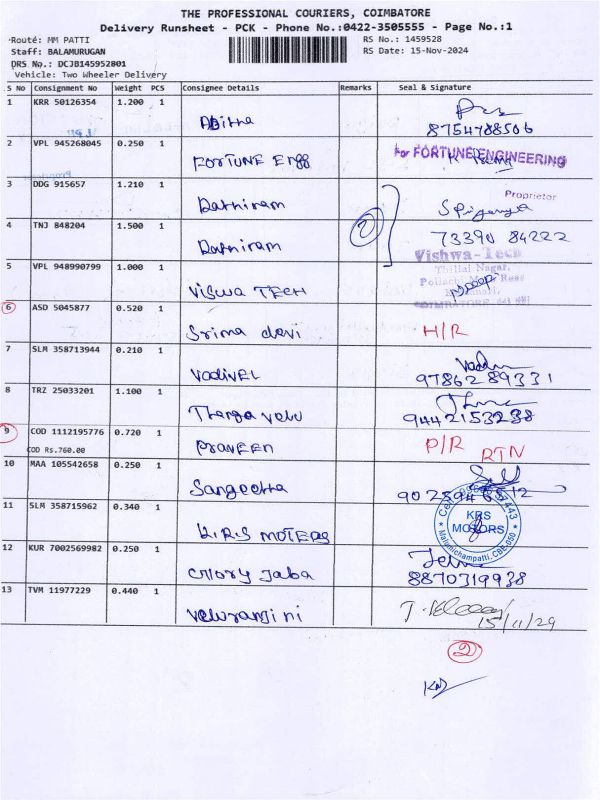 THE PROFESSIONAL COURIERS, COIMBATORE
Delivery Runsheet - PCK - Phone No.:0422-3505555 - Page No.:1
Route: MM PATTI
RS No.: 1459528
Staff: BALAMURUGAN
RS Date: 15-Nov-2024
DRS No.: DCJB145952801
Vehicle: Two Wheeler Delivery
S No Consignment No Weight PCS Consignee Details Remarks Seal & Signature
1 KRR 50126354 1.200 1 Abitha
8754788506
2 VPL 945268045 0.250 1 FORTUNE Engg
For FORTUNE ENGINEERING
Proprietor
3 DDG 915657 1.210 1 Dathiram
4 TNJ 848204 1.500 1 Dathiram 2 73390 84222
5 VPL 948990799 1.000 1 Viswa TECH
Vishwa-Tech
Thillai Nagar,
6 ASD 5045877 0.520 1 Srima devi H/R
7 SLM 358713944 0.210 1 VadiVEL
9786289331
8 TRZ 25033201 1.100 1 Thangavelu
9442153238
9 COD 1112195776 0.720 1 PRAVEEN P/R RTN
COD Rs.760.00
10 MAA 105542658 0.250 1 Sangeetha
11 SLM 358715962 0.340 1 K.R.S MOTERS
KRS
MOTORS
Malumichampatti, CBE-050
12 KUR 7002569982 0.250 1 Glory Jaba
8870319938
13 TVM 11977229 0.440 1 Veluranjini
15/11/24
2